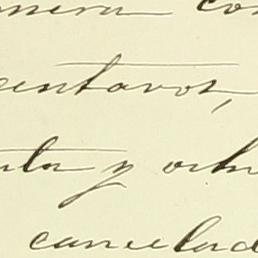 mera co
entavos,
nta y och
cancelad